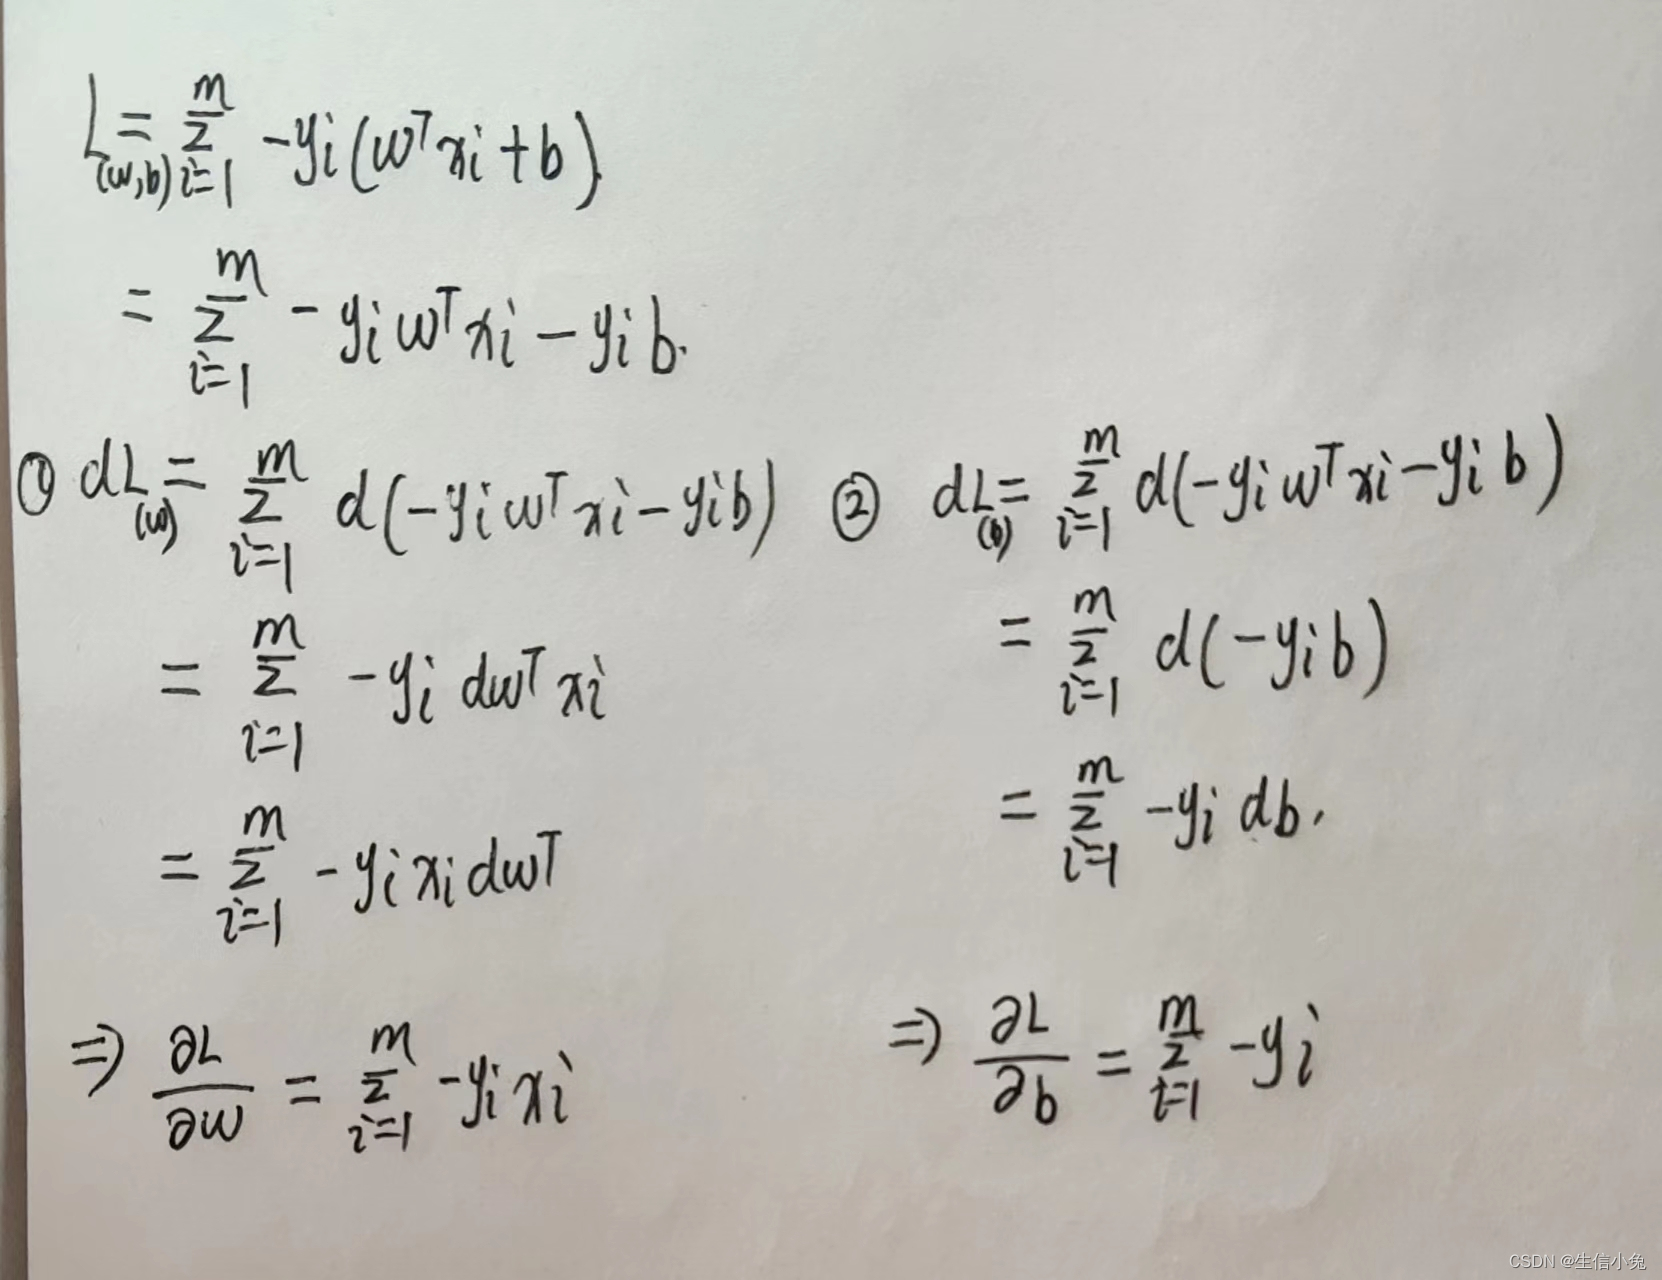 L(w,b) = \sum_{i=1}^{m} -y_i(w^T x_i + b)
= \sum_{i=1}^{m} -y_i w^T x_i - y_i b.
① dL(w) = \sum_{i=1}^{m} d(-y_i w^T x_i - y_i b)
= \sum_{i=1}^{m} -y_i dw^T x_i
= \sum_{i=1}^{m} -y_i x_i dw^T
⇒ \frac{∂L}{∂w} = \sum_{i=1}^{m} -y_i x_i
② dL(b) = \sum_{i=1}^{m} d(-y_i w^T x_i - y_i b)
= \sum_{i=1}^{m} d(-y_i b)
= \sum_{i=1}^{m} -y_i db.
⇒ \frac{∂L}{∂b} = \sum_{i=1}^{m} -y_i
CSDN @生信小兔